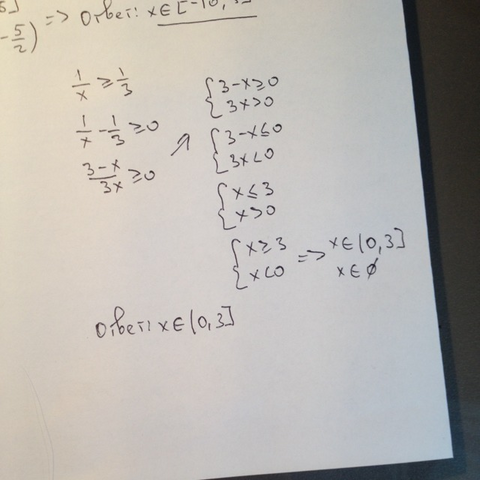 5]
-5/2) => Ответ: x∈[-10,
1/x ≥ 1/3
1/x - 1/3 ≥ 0
(3-x)/3x ≥ 0
{ 3-x≥0
{ 3x>0
{ 3-x≤0
{ 3x<0
{ x≤3
{ x>0
{ x≥3
{ x<0
=> x∈(0,3]
x∈∅
Ответ: x∈(0,3]